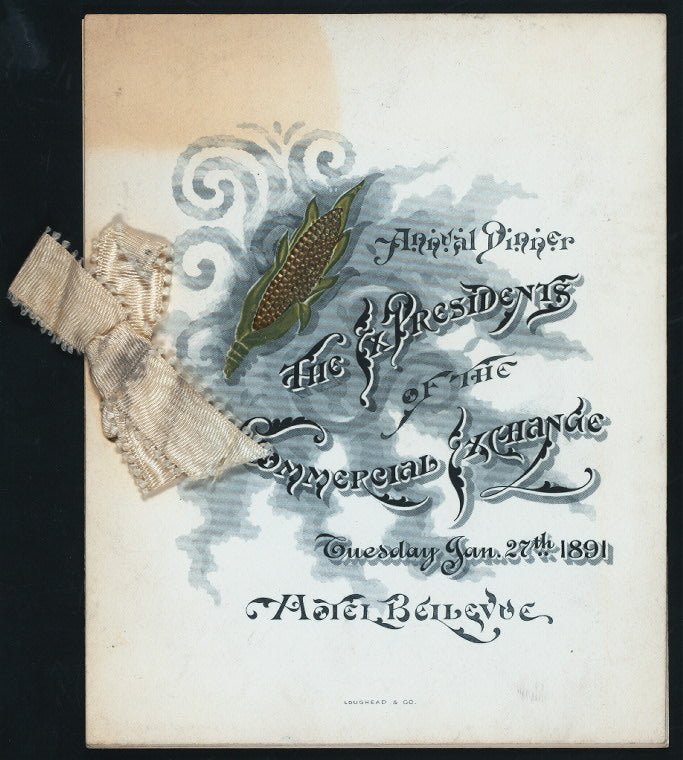 Annual Dinner
The Ex Presidents
of the
Commercial Exchange
Tuesday Jan. 27th 1891
Hotel Bellevue
LOUGHEAD & CO.